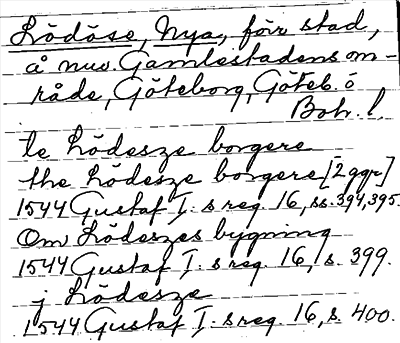 Lödöse, Nya, förr stad,
å nuv. Gamlestadens om-
råde, Göteborg, Göteb. o
Boh. l.
te Lödesze borgere
the Lödesze borgere [2 ggr]
1544 Gustaf I:s reg. 16, ss. 394, 395.
Om Lödeszes bygning
1544 Gustaf I:s reg. 16, s. 399.
j Lödesze
1544 Gustaf I:s reg. 16, s. 400.